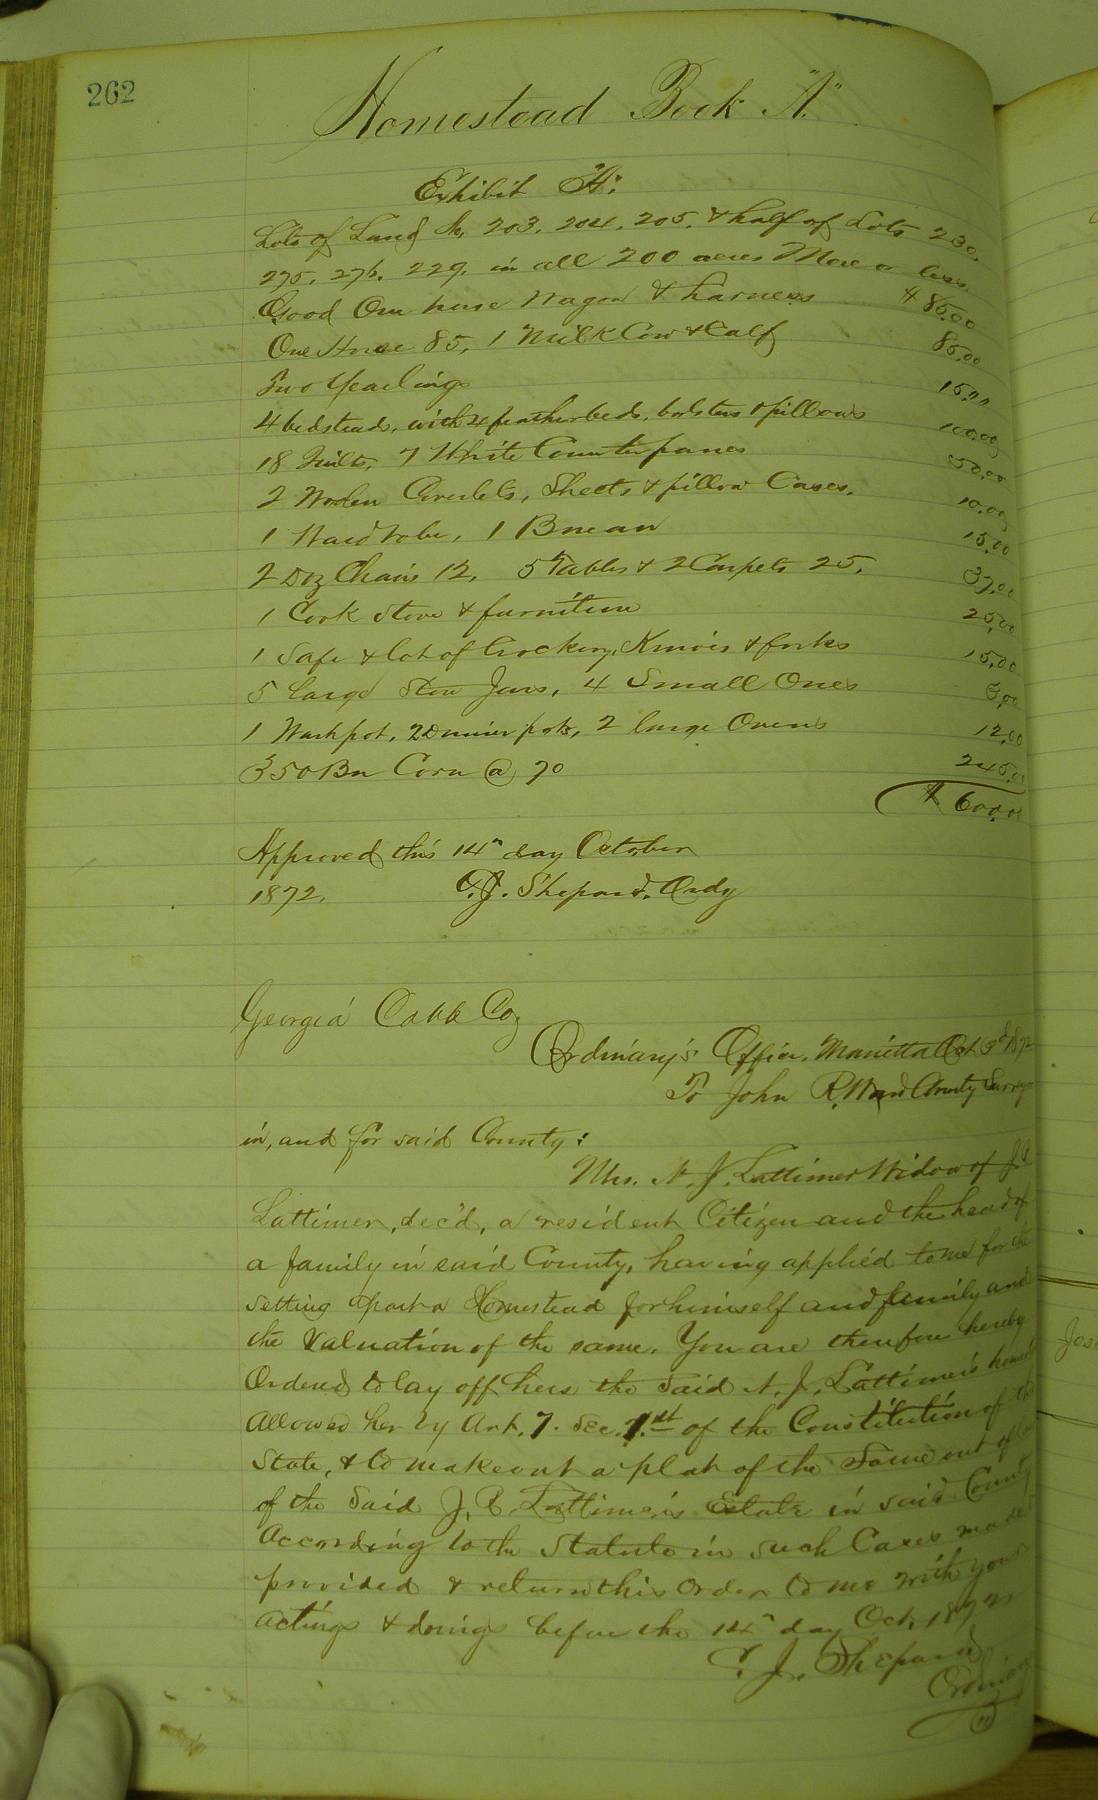 262
Homestead Book "A"
Exhibit "A":
Lots of Land No, 203, 204, 205, & half of Lots 230,
275, 276, 229, in all 200 acres More or less
Good One horse Wagon & harness $85.00
One Horse 85, 1 Milk Cow & Calf 85,00
Two Yearlings 15,00
4 bedsteads, with 4 featherbeds, bolsters & pillows 100,00
18 Quilts, 7 White Counterpanes 50,00
2 Woolen Coverlets, Sheets & pillow Cases, 10,00
1 Wardrobe, 1 Bureau 15,00
2 Doz Chairs 12, 5 Tables & 2 Carpets 25, 37,00
1 Cook Stove & furniture 25,00
1 Safe & lot of Crockery, Knives & forks 15,00
5 large Stone Jars, 4 Small Ones 5,00
1 Washpot, 2 Dinner pots, 2 large Ovens 12,00
350 Bu Corn @ 70 245,0
$600,0
Approved this 14th day October
1872, T.J. Shepard, Ordy
Georgia Cobb Co,
Ordinary's Office, Marietta Oct 3d 1872
To John R. Ward County Survey
in, and for said County:
Mrs. N. J. Lattimer Widow of J.
Lattimer, dec'd, a resident Citizen and the head of
a family in said County, having applied to me for the
setting apart a Homestead for himself and family and
the valuation of the same, You are therefore hereby
Ordered to lay off hers the Said N. J. Lattimer's
allowed her by Art, 7. Sec. 1.st of the Constitution of
State, & to make out a plat of the Same out of
of the Said J, Lattimer's Estate in said County
According to the Statute in such Cases made
provided & return this Order to me with your
actings & doings before the 14th day Oct, 1872
T. J. Shepard
Ordinary